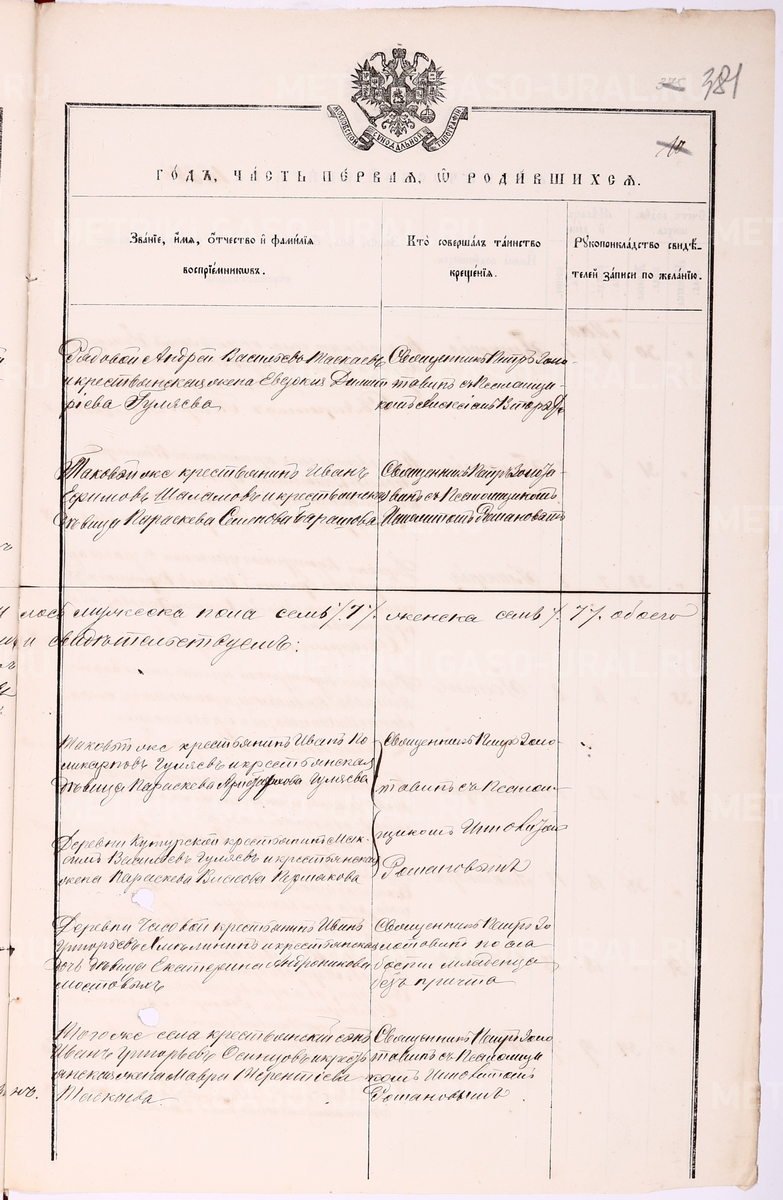 381
МОСКОВСКОЙ СѴНОДАЛЬНОЙ ТИПОГРАФІИ
ГО́ДЪ, ЧА́СТЬ ПЕ́РВАЯ, Ѽ РОДИ́ВШИХСЯ.
Зва́нїе, и́мя, ѻ́тчество и҆ фамилїя
воспрїе́мникѡвъ.
Кто̀ соверша́лъ та́инство
креще́нїя.
Рꙋкоприкла́дство свидѣ́-
телей за́писи по жела́нїю.
Рядовой Андрей Васильевъ Таскаевъ
и крестьянская жена Евдокия Димит
ріева Гуляева
Священникъ Петръ Золо
тавинъ съ Псаломщи-
комъ
Таковой же крестьянинъ Иванъ
Ефимовъ Шаламовъ и крестьянская
дѣвица Параскева Семенова
Священникъ Петръ Золота
винъ съ Псаломщикомъ
Романовымъ
лось мужеска пола семь /7/. женска семь /. 7/. обоего
и свидѣтельствуемъ:
Таковой же крестьянинъ Иванъ По
ликарповъ Гуляевъ и крестьянская
дѣвица Параскева Гуляева
Священникъ Петръ Золо-
тавинъ съ Псалом-
щикомъ
Романовымъ
Деревни крестьянинъ Мак-
симъ Васильевъ Гуляевъ и крестьянская
жена Параскева Власова Пермякова
Деревни Часовой крестьянинъ Иванъ
Григорьевъ и крестьянская
дочь дѣвица Екатерина Андроникова
Мостовыхъ
Священникъ Петръ Зо
лотавинъ по сла
бости младенца
безъ причта
Того же села крестьянскій сынъ
Иванъ Григорьевъ Осинцовъ и крест
янская жена Мавра Терентіева
Таскаева.
Священникъ Петръ Золо
тавинъ съ Псаломщи
комъ
Романовымъ